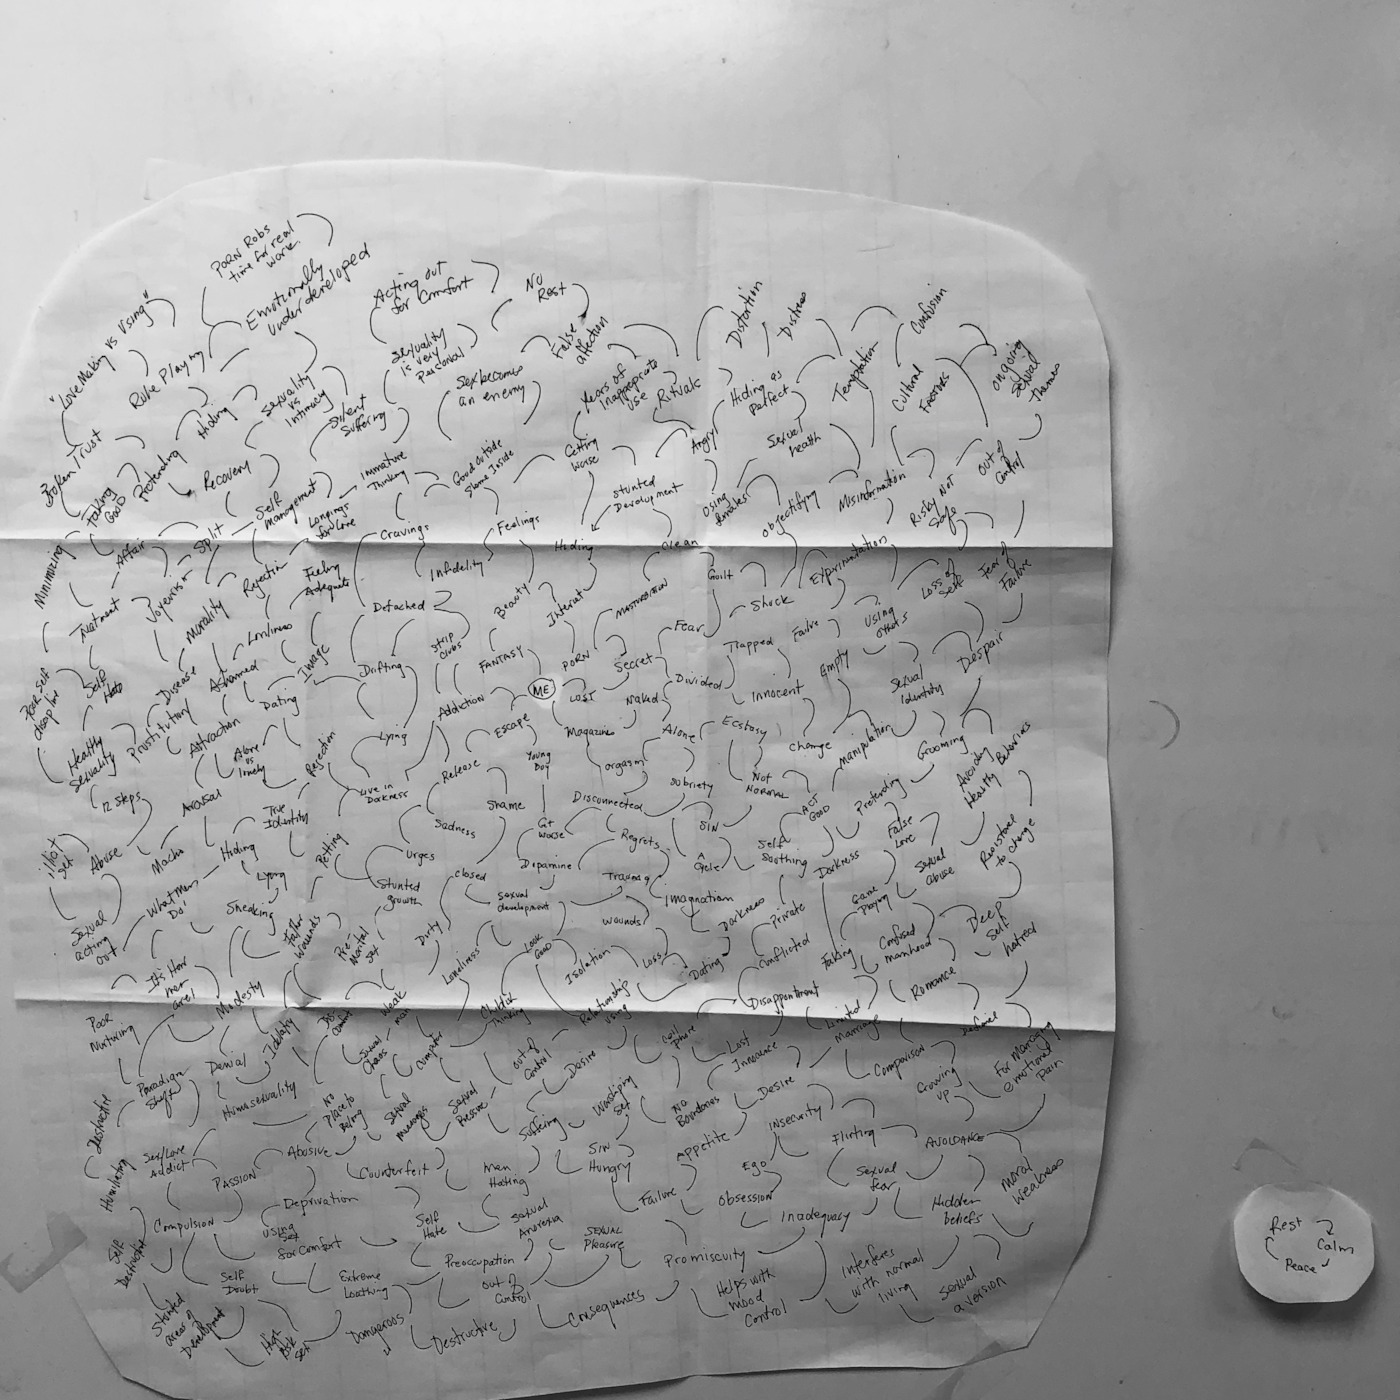 PORN Robs
time for real
work.
Emotionally
Underdeveloped
Acting out
for Comfort
NO
Rest
"Love Making vs Using"
Role Playing
Hiding
Sexuality
vs
Intimacy
Silent
Suffering
Sexuality
is very
Personal
Sex becomes
an enemy
False
affection
Years of
Inappropriate
use
Rituals
Distortion
Distress
Hiding as
Perfect
Temptation
Confusion
Cultural
Factors
ongoing
Sexual
Themes
Broken Trust
Faking
Good
Pretending
Recovery
Self
Management
Immature
Thinking
Good outside
Shame Inside
Getting
Worse
Stunted
Development
Angry
Sexual
health
Using
females
Objectifying
Misinformation
Risky Not
Safe
Out of
Control
Minimizing
Affair
Split
Longings
for Love
Cravings
Feelings
Hiding
Clean
Guilt
Treatment
Morality
Rejection
Feeling
Adequate
Infidelity
Beauty
Internet
MASTURBATION
Experimentation
Loss of
Self
Fear of
Failure
Detached
Shock
Fear
Failure
Using
others
Self
Hate
Disease
Ashamed
Loneliness
Image
Drifting
Strip
Clubs
FANTASY
PORN
Secret
Divided
Trapped
Empty
Innocent
Sexual
Identity
Despair
Healthy
Sexuality
Prostitution
Attraction
Dating
Addiction
ME
LOST
Naked
Alone
vs
lonely
Rejection
Lying
Escape
Magazines
Alone
Ecstasy
Change
Manipulation
Grooming
Avoiding
Healthy Behaviors
12 Steps
Arousal
True
Identity
Live in
Darkness
Release
Young
Boy
orgasm
Sobriety
Not
NORMAL
ACT
GOOD
Pretending
illicit
sex
Abuse
Macho
Hiding
Petting
Shame
Disconnected
SIN
False
Love
Resistance
to change
Sadness
Get
worse
Regrets
A
Cycle
Self
Soothing
Darkness
Sexual
abuse
Urges
Dopamine
Trauma
What Men
Do'
Lying
Stunted
growth
Closed
Sexual
development
Imagination
Game
Playing
Sexual
acting
out
Sneaking
Father
Wounds
Pre-
Marital
Sex
Dirty
wounds
Darkness
Private
Deep
Self
hatred
Loneliness
Look
Good
Isolation
Loss
Dating
Conflicted
Faking
Confused
manhood
It's How
men
are!
Modesty
Weak
man
Childish
Thinking
Relationship
using
Disappointment
Romance
Poor
Nurturing
Denial
Identity
Sexual
Chaos
Computer
out of
Control
Desire
Cell
phone
Lost
Innocence
Limited
Marriage
Comparison
Growing
up
For Managing
emotional
Pain
Paradigm
Shift
Homosexuality
No
Place to
Belong
Sexual
messages
Sexual
Pressure
Suffering
Worshiping
Sex
No
Boundaries
Desire
Insecurity
Flirting
AVOIDANCE
Destructive
Sex/Love
Addict
PASSION
Abusive
Counterfeit
Man
Hating
SIN
Hungry
Appetite
Ego
Sexual
fear
Moral
Weakness
Humiliating
Deprivation
Failure
Obsession
Inadequacy
Hidden
beliefs
Compulsion
Using
Sex
for Comfort
Self
Hate
Sexual
Anorexia
SEXUAL
PLEASURE
Promiscuity
Self
Destructive
Self
Doubt
Extreme
Loathing
Preoccupation
out of
Control
Consequences
Helps with
mood
Control
Interferes
with normal
living
Sexual
aversion
Stunted
areas of
Development
High
Risk
Sex
Dangerous
Destructive
Rest
Calm
Peace